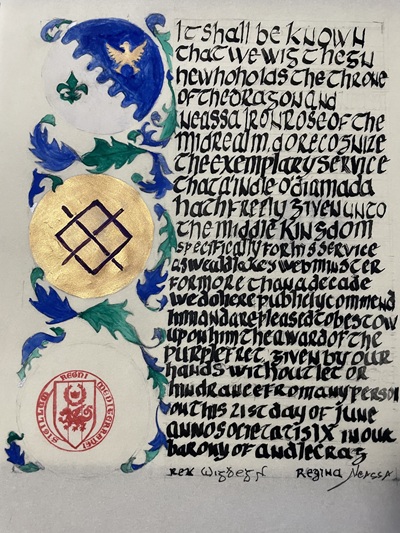 It shall be known
that we wigthegn
he who holds the throne
of the dragon and
neassa Ironrose of the
midrealm, do recognize
the exemplary service
that aindle o'diamada
hath freely given unto
the middle kingdom
specifically for his service
as wealdlakes webminister
for more than a decade
we do here publicly commend
him and are pleased to bestow
upon him the award of the
purple fret, given by our
hands without let or
hindrance from any person
on this 21st day of june
anno societatis lx in our
barony of andlecrag
Rex Wigþegn Regina Neassa
SIGILLUM REGNI